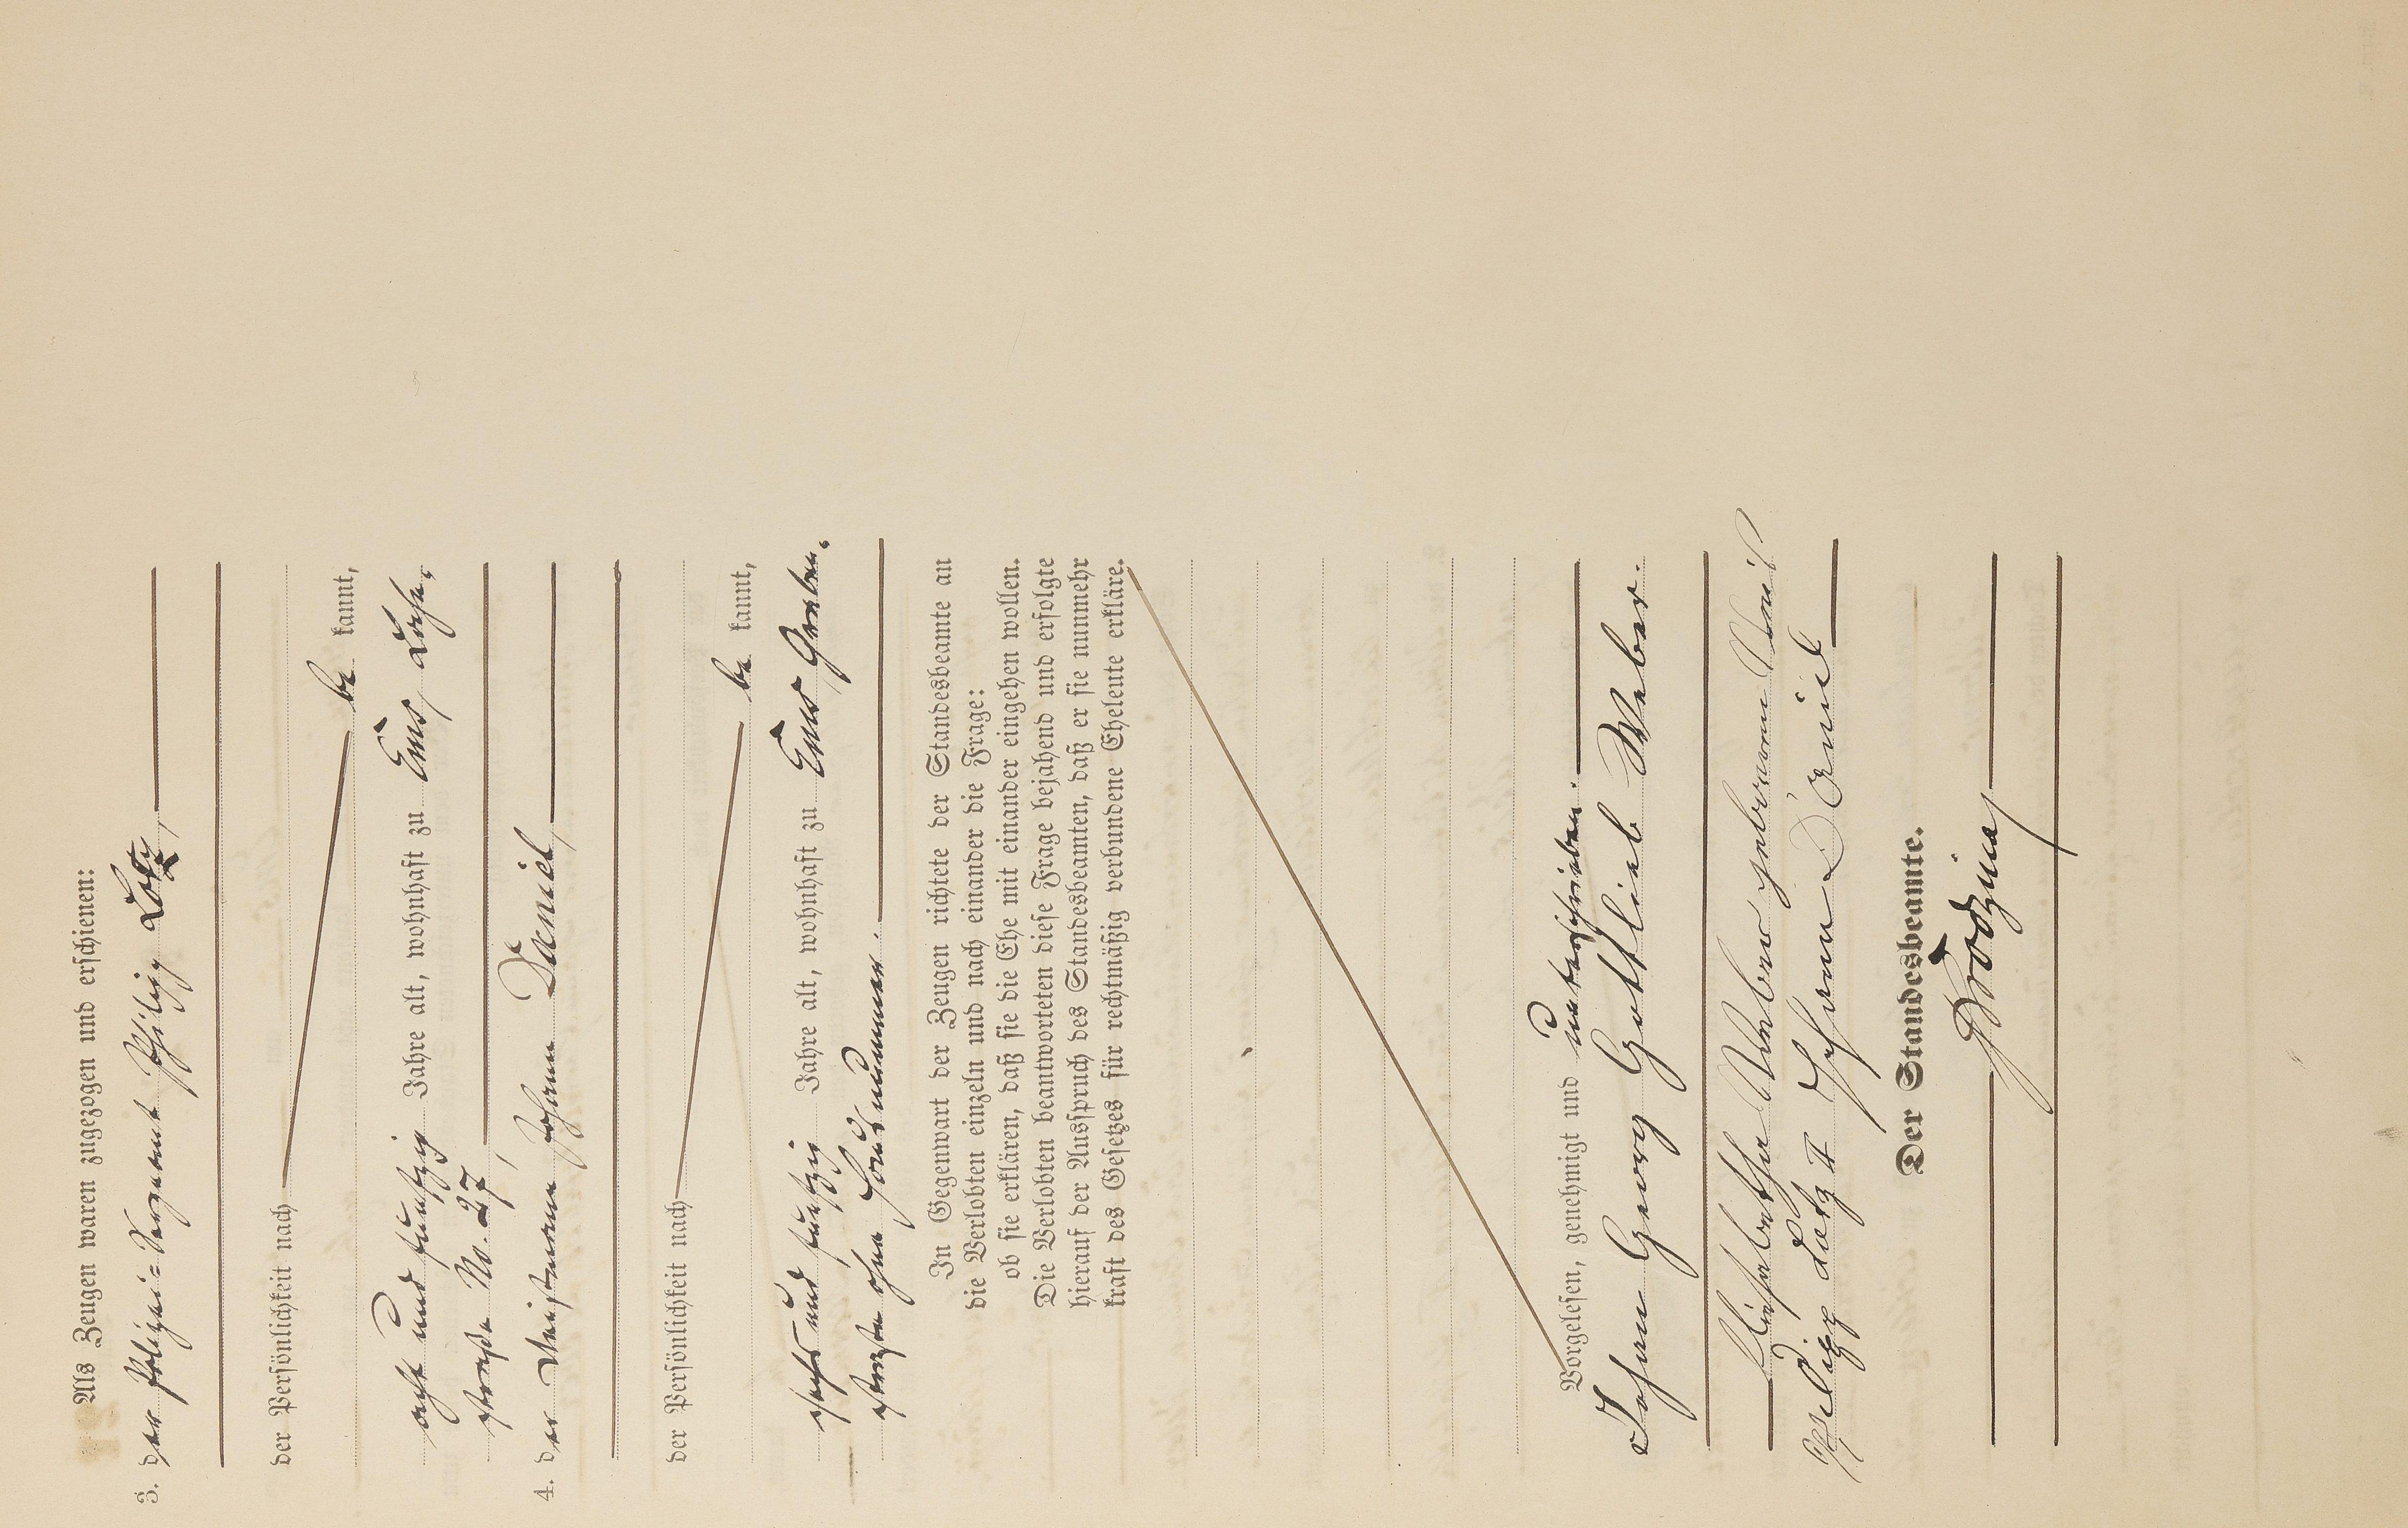 Als Zeugen waren zugezogen und erschienen:
3. der Polizei=Sergeant Philipp Lotz,
der Persönlichkeit nach
be kannt,
acht und fünfzig Jahre alt, wohnhaft zu Ems,
straße No. 27,
4. der Johann Daeniel,
der Persönlichkeit nach
be kannt,
sechs und fünfzig Jahre alt, wohnhaft zu Ems, Graben-
straße ohne Hausnummer.
In Gegenwart der Zeugen richtete der Standesbeamte an
die Verlobten einzeln und nach einander die Frage:
ob sie erklären, daß sie die Ehe mit einander eingehen wollen.
Die Verlobten beantworteten diese Frage bejahend und erfolgte
hierauf der Ausspruch des Standesbeamten, daß er sie nunmehr
kraft des Gesetzes für rechtmäßig verbundene Eheleute erkläre.
Vorgelesen, genehmigt und unterschrieben.
Johann Georg Gottlieb Weber.
Elisabetha Weber geborene
Philipp Lotz II Johann Däniel
Der Standesbeamte.